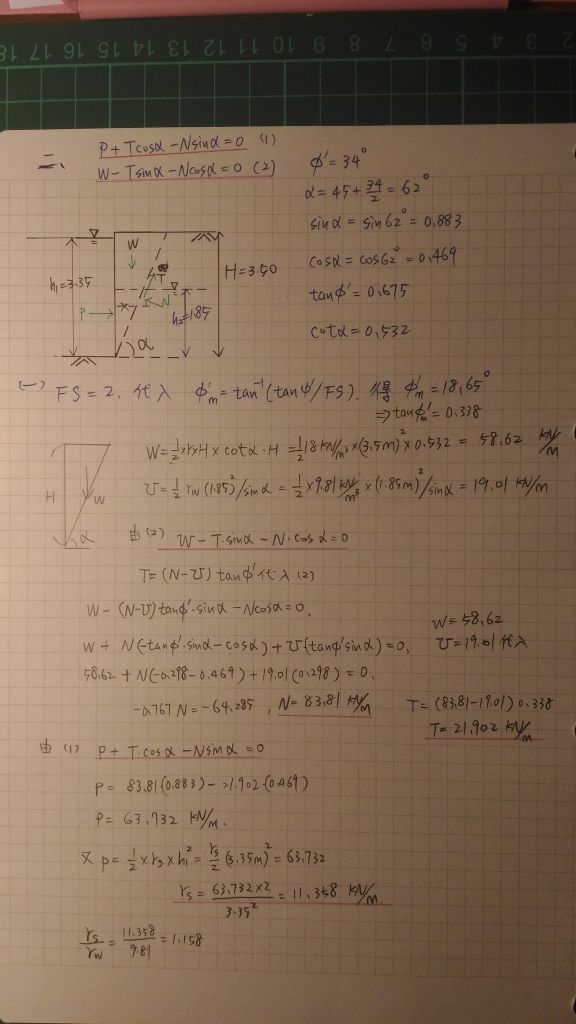 18 17 16 15 14 13 12 11 10 9 8 7 6 5 4 3 2
二、 P + Tcosα - Nsinα = 0 (1)
W - Tsinα - Ncosα = 0 (2)
φ' = 34°
α = 45 + 34/2 = 62°
sinα = sin62° = 0.883
cosα = cos62° = 0.469
tanφ' = 0.675
cotα = 0.532
W
T
N
P →
h₁=3.35
h₂=1.85
H=3.50
α
(一) FS = 2. 代入 φ'm = tan⁻¹(tanφ'/FS). 得 φ'm = 18.65°
⇒ tanφ'm = 0.338
H
W
α
W = 1/2 × r × H × cotα · H = 1/2 18 KN/m³ × (3.5m)² × 0.532 = 58.62 KN/m
U = 1/2 rw (1.85)²/sinα = 1/2 × 9.81 KN/m³ × (1.85m)²/sinα = 19.01 KN/m
由(2) W - T·sinα - N·cosα = 0
T = (N-U) tanφ' 代入(2)
W - (N-U) tanφ'·sinα - Ncosα = 0.
W + N(-tanφ'·sinα - cosα) + U(tanφ'sinα) = 0,
W = 58.62
U = 19.01 代入
58.62 + N(-0.298 - 0.469) + 19.01(0.298) = 0.
-0.767 N = -64.285 , N = 83.81 KN/m
T = (83.81 - 19.01) 0.338
T = 21.902 KN/m
由(1) P + T·cosα - Nsinα = 0
P = 83.81(0.883) - 21.902(0.469)
P = 63.732 KN/m.
又 P = 1/2 × rs × h₁² = rs/2 (3.35m)² = 63.732
rs = 63.732×2/3.35² = 11.358 KN/m.
rs/rw = 11.358/9.81 = 1.158